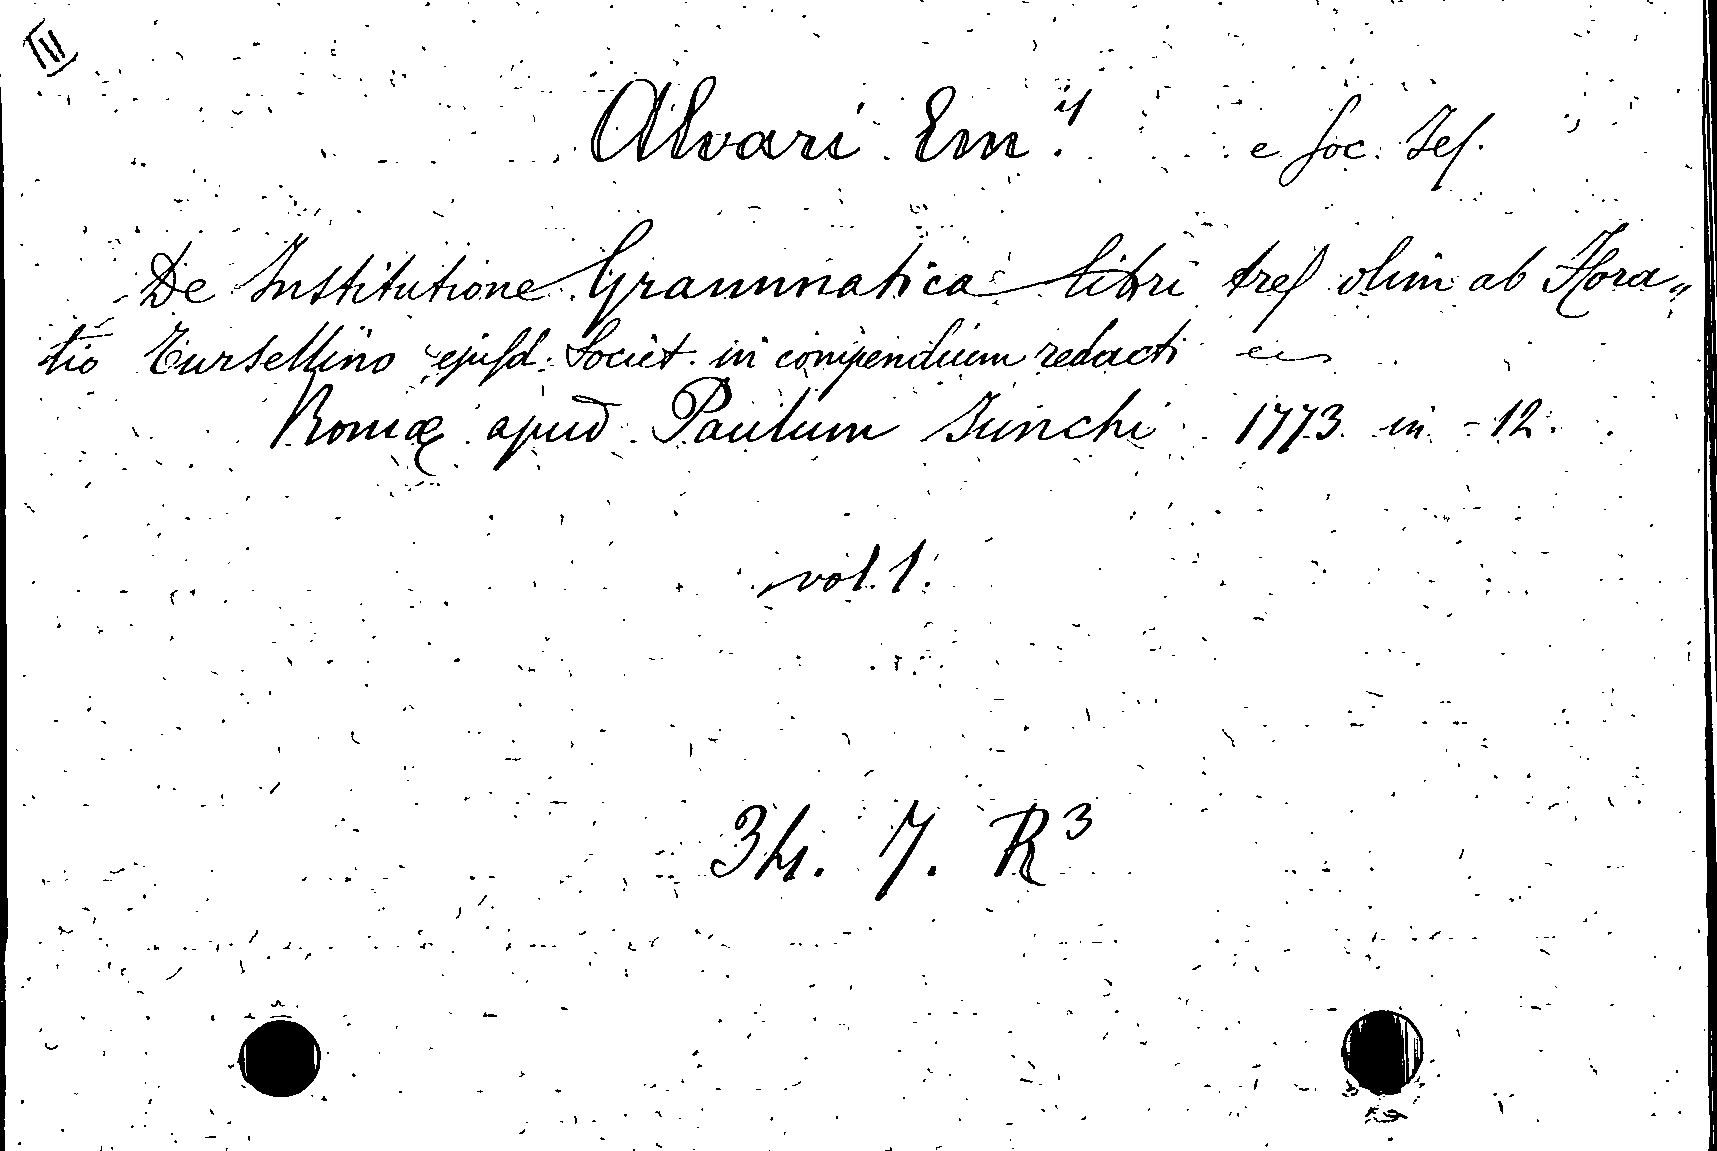 III
Alvari Em.ˡˡ e Soc. Jes.
De Institutione Grammatica libri tres olim ab Hora„
tio Tursellino ejusd. Societ. in compendium redacti
Romæ apud Paulum Junchi 1773 in-12.
vol. 1.
34. 7. R³